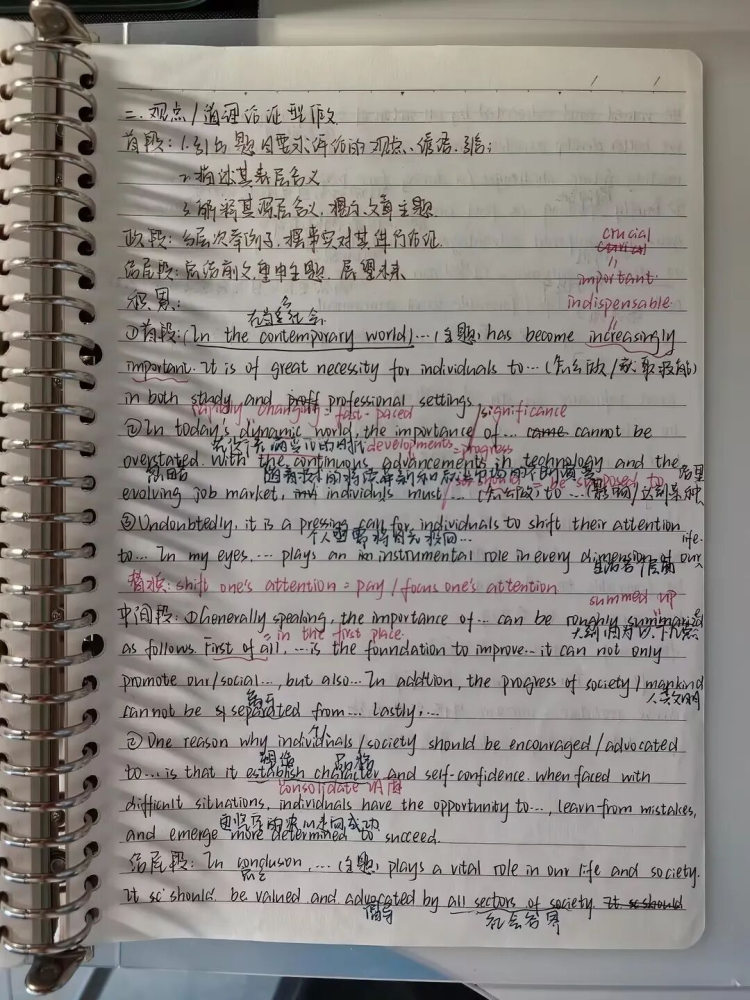 二.观点/道理论证型作文
首段:1.引出题目要求评论的观点、谚语、引言;
2.描述其表层含义
3.解释其深层含义,揭示文章主题
正段:分层次举例子,摆事实对其进行论证
结尾段:总结前文,重申主题,展望未来
crucial
=
important
=
indispensable
积累:
在当今社会
①首段:In the contemporary world,…(主题) has become increasingly
important. It is of great necessity for individuals to…(怎么做/获取技能)
in both study and professional settings.
rapidly changing = fast-paced /significance
②In today's dynamic world, the importance of… came cannot be
developments = progress
overstated. With the continuous advancements in technology and the
be supposed to
evolving job market, individuals must…(怎么做) to…(影响/达到某种
③Undoubtedly, it is a pressing call for individuals to shift their attention
个人迫切需要将目光投向…
to… In my eyes,… plays an instrumental role in every dimension of our life.
生活各个层面
替换: shift one's attention = pay/focus one's attention
summed up
中间段:①Generally speaking, the importance of… can be roughly summarized
大致归纳为以下几点
in the first place
as follows. First of all,…is the foundation to improve… it can not only
promote our/social…, but also… In addition, the progress of society/mankind
人类文明
cannot be separated from… Lastly,…
②One reason why individuals/society should be encouraged/advocated
塑造 品格
to… is that it establish character and self-confidence. when faced with
consolidate 巩固
difficult situations, individuals have the opportunity to…, learn from mistakes,
更坚定的决心走向成功
and emerge more determined to succeed.
结尾段:In conclusion,…(主题) plays a vital role in our life and society.
总之
It should be valued and advocated by all sectors of society. It sc should
倡导 社会各界